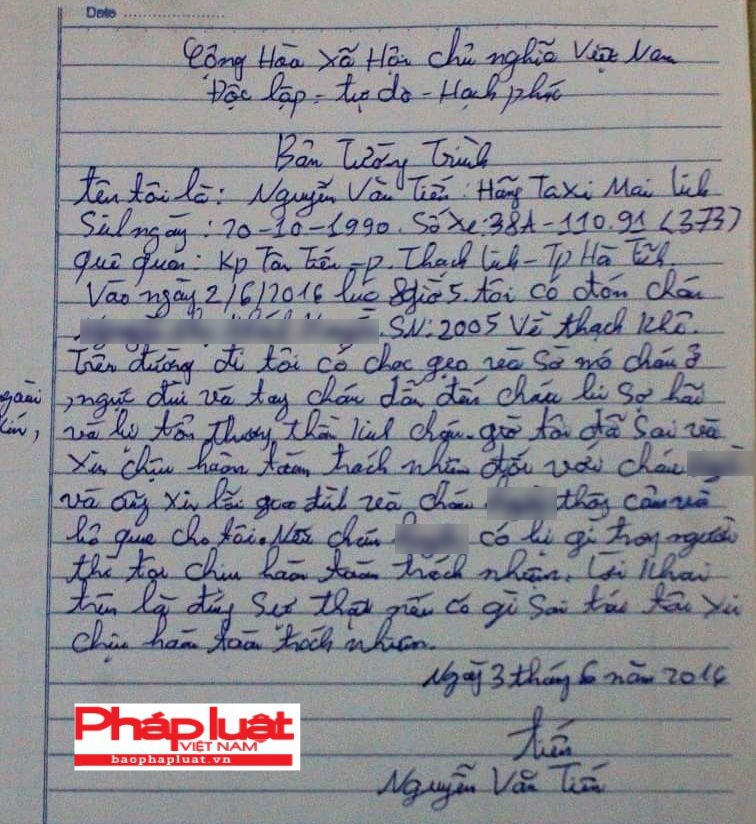 Date
Cộng Hòa Xã Hội chủ nghĩa Việt Nam
Độc lập - tự do - Hạnh phúc
Bản Tường Trình
tên tôi là: Nguyễn Văn Tiến: Hãng Taxi Mai Linh
Sinh ngày: 20-10-1990. Số xe: 38A-110.91 (373)
quê quán: Kp Tân Tiến - p. Thạch Linh - Tp Hà Tĩnh.
Vào ngày 2/6/2016 lúc 8 giờ 5. tôi có đón cháu
SN: 2005 Về thạch Khê.
trên đường đi tôi có chọc gẹo và sờ mó cháu ở
, ngực đùi và tay cháu dẫn đến cháu bị sợ hãi
và bị tổn thương thần kinh cháu. giờ tôi đã sai và
xin chịu hoàn toàn trách nhiệm đối với cháu
và cũng xin lỗi gia đình và cháu thông cảm và
bỏ qua cho tôi. Nếu cháu có bị gì trong người
thì tôi chịu hoàn toàn trách nhiệm. Lời khai
trên là đúng sự thật nếu có gì sai trái tôi xin
chịu hoàn toàn trách nhiệm.
Ngày 3 tháng 6 năm 2016
Tiến
Nguyễn Văn Tiến
Pháp luật
VIỆT NAM
baophapluat.vn